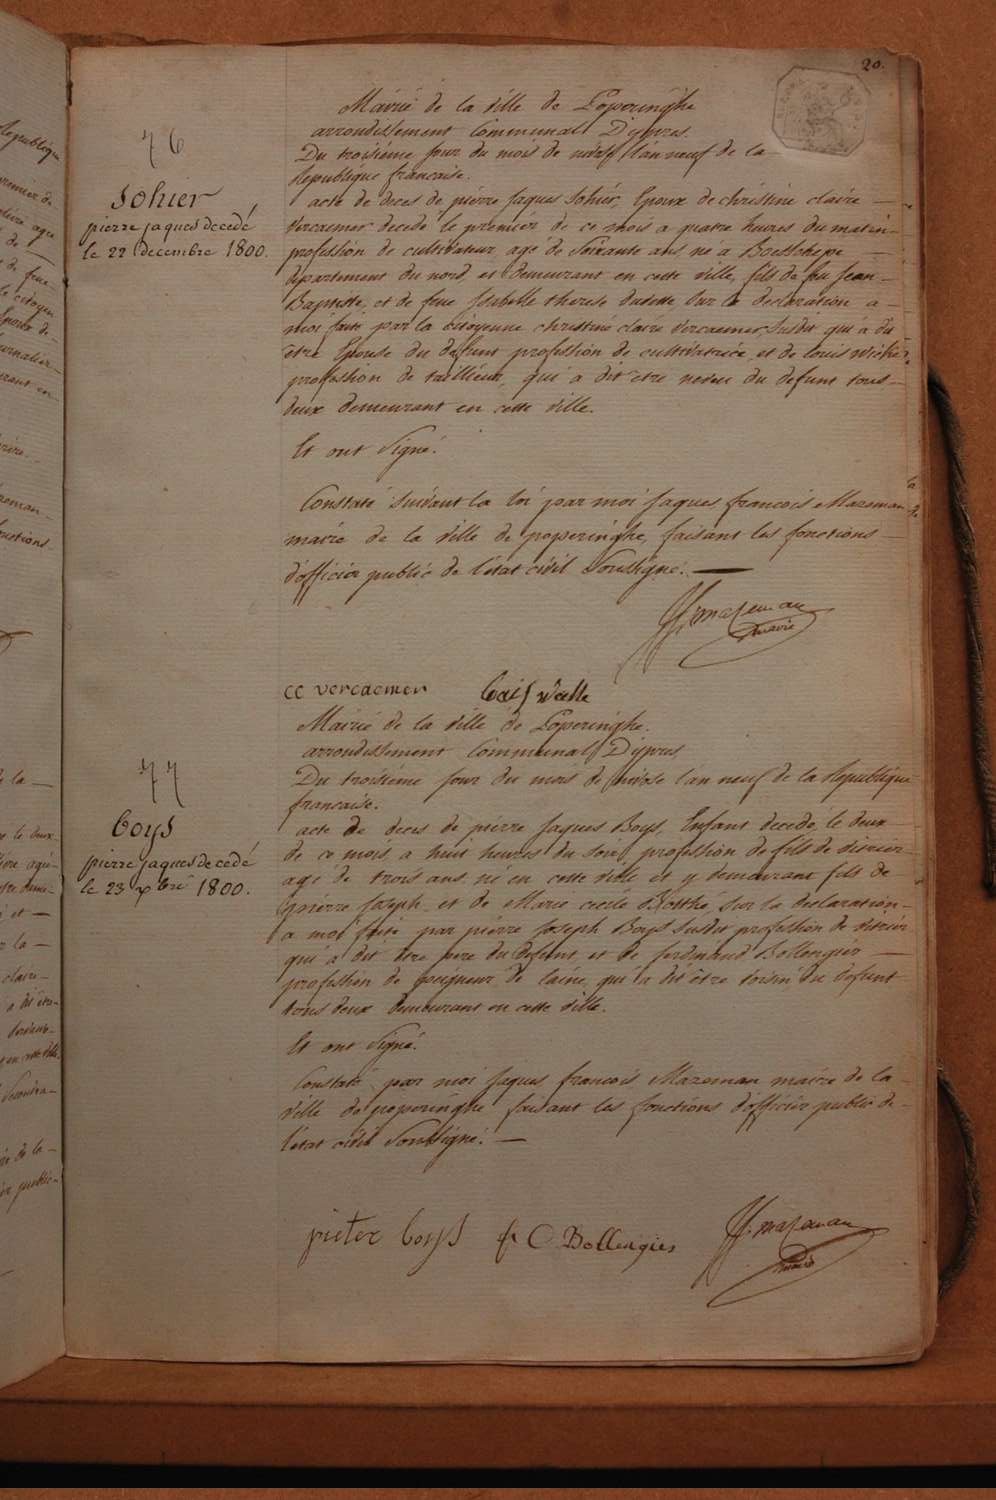 20.
76
Sohier
pierre jaques decedé
le 22 decembre 1800.
Mairie de la ville de Poperinghe
arrondissement Communal D'ypres.
Du troisième jour du mois de nivose l'an neuf de la
Republique francaise.
acte de deces de pierre Jaques Sohier, Epoux de christine claire
Vercaemer decedé le premier de ce mois a quatre heures du matin
profession de cultivateur, agé de Soixante ans, né a Boesschepe
departement du nord et demeurant en cette ville, fils de feu Jean
Baptiste, et de feue Isabelle therese dusotte Sur la declaration a
moi faite par la citoyenne christine claire Vercaemer, Susdit qui a dit
être Epouse du defunt profession de cultivatrice et de louis
profession de taillieur, qui a dit etre neveu du defunt tous
deux demeurant en cette ville.
Et ont Signé.
Constaté suivant la loi par moi Jaques francois Mazeman
maire de la ville de poperinghe, faisant les fonctions
d'officier public de l'état civil Soussigné.
JF. mazeman
maire
cc vercaemer
77
Boys
pierre jaques decedé
le 23 xbre 1800.
Mairie de la ville de Poperinghe.
arrondissement Communal D'ypres
Du troisième jour du mois de nivose l'an neuf de la Republique
francaise.
acte de deces de pierre Jaques Boys, Enfant decedé le deux
de ce mois, a huit heures du soir, profession de fils de vitrier
agé de trois ans, né en cette ville et y demeurant fils de
pierre Joseph et de Marie cecile, Sur la declaration
a moi faite par pierre Joseph Boys Susdit profession de vitrier
qui a dit être pere du defunt et de ferdinand Bollengier
profession de peigneur de laine, qui a dit être voisin du defunt
tous deux demeurant en cette ville.
Et ont Signé.
Constaté par moi Jaques francois Mazeman maire de la
ville de poperinghe faisant les fonctions d'officier public de
l'état civil Soussigné.
pieter boys f C Bollengier JF. mazeman
maire